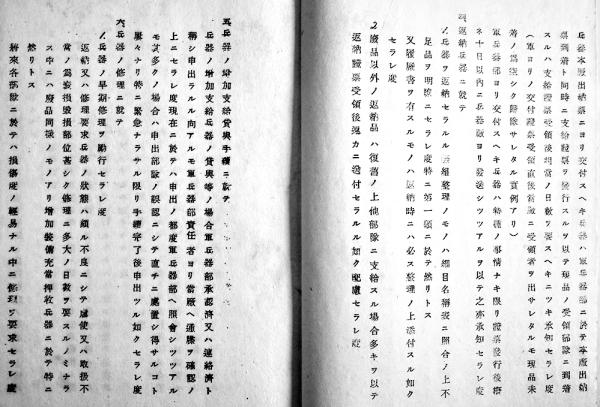 兵器本廠出納票ニヨリ交付スヘキ兵器ハ軍兵器部ニ於テ本廠出納
票到着ト同時ニ支給證票ヲ發行スルヲ以テ現品ノ受領部隊ニ到着
スルハ支給證票受領後相當ノ日數ヲ要スヘキニツキ承知セラレ度
(軍ヨリノ交付證票受領直後當廠ニ受領者ヲ出サレタルモ現品未
着ノ爲空シク歸隊サレタル實例アリ)
軍兵器部ヨリ交付スヘキ兵器ハ特種ノ事情ナキ限リ證票發行後槪
ネ十日以内ニ兵器廠ヨリ發送シツツアルヲ以テ之亦承知セラレ度
四返納兵器ニ就テ
1兵器ヲ返納セラルルニハ梱整理ノモノハ細目名稱表ニ照合ノ上不
足品ヲ明瞭ニセラレ度特ニ第一項ニ於テ然リトス
又履歴書ヲ有スルモノハ返納時ニハ必ス整理ノ上添付スル如ク
セラレ度
2廢品以外ノ返納品ハ復活ノ上他部隊ニ支給スル場合多キヲ以テ
返納證票受領後速カニ送付セラルル如ク配慮セラレ度
五兵器ノ增加支給貸與手續ニ就テ
兵器ノ增加支給兵器ノ貸與等ノ場合軍兵器部承認濟又ハ連絡濟ト
稱シ申出ラルル向アルモ軍兵器部責任者ヨリ當廠ヘ通牒ヲ確認ノ
上ニセラレ度現在ニ於テハ申出ノ都度軍兵器部ヘ照會シツツアル
モ其多クノ場合ハ申出部隊ノ誤認ニシテ直チニ處置シ得サルコト
屢々ナリ特ニ緊急ナラサル限リ手續完了後申出ツル如クセラレ度
六兵器ノ修理ニ就テ
1兵器ノ早期修理ヲ勵行セラレ度
返納又ハ修理要求兵器ノ狀態ハ頗ル不良ニシテ虐使又ハ取扱不
當ノ爲毀損部位甚シク修理ニ多大ノ日數ヲ要スルノミナラ
ス中ニハ廢品同樣ノモノアリ增加裝備充當押收兵器ニ於テ特ニ
然リトス
將來各部隊ニ於テハ損傷度ノ輕易ナル中ニ修理ヲ要求セラレ度